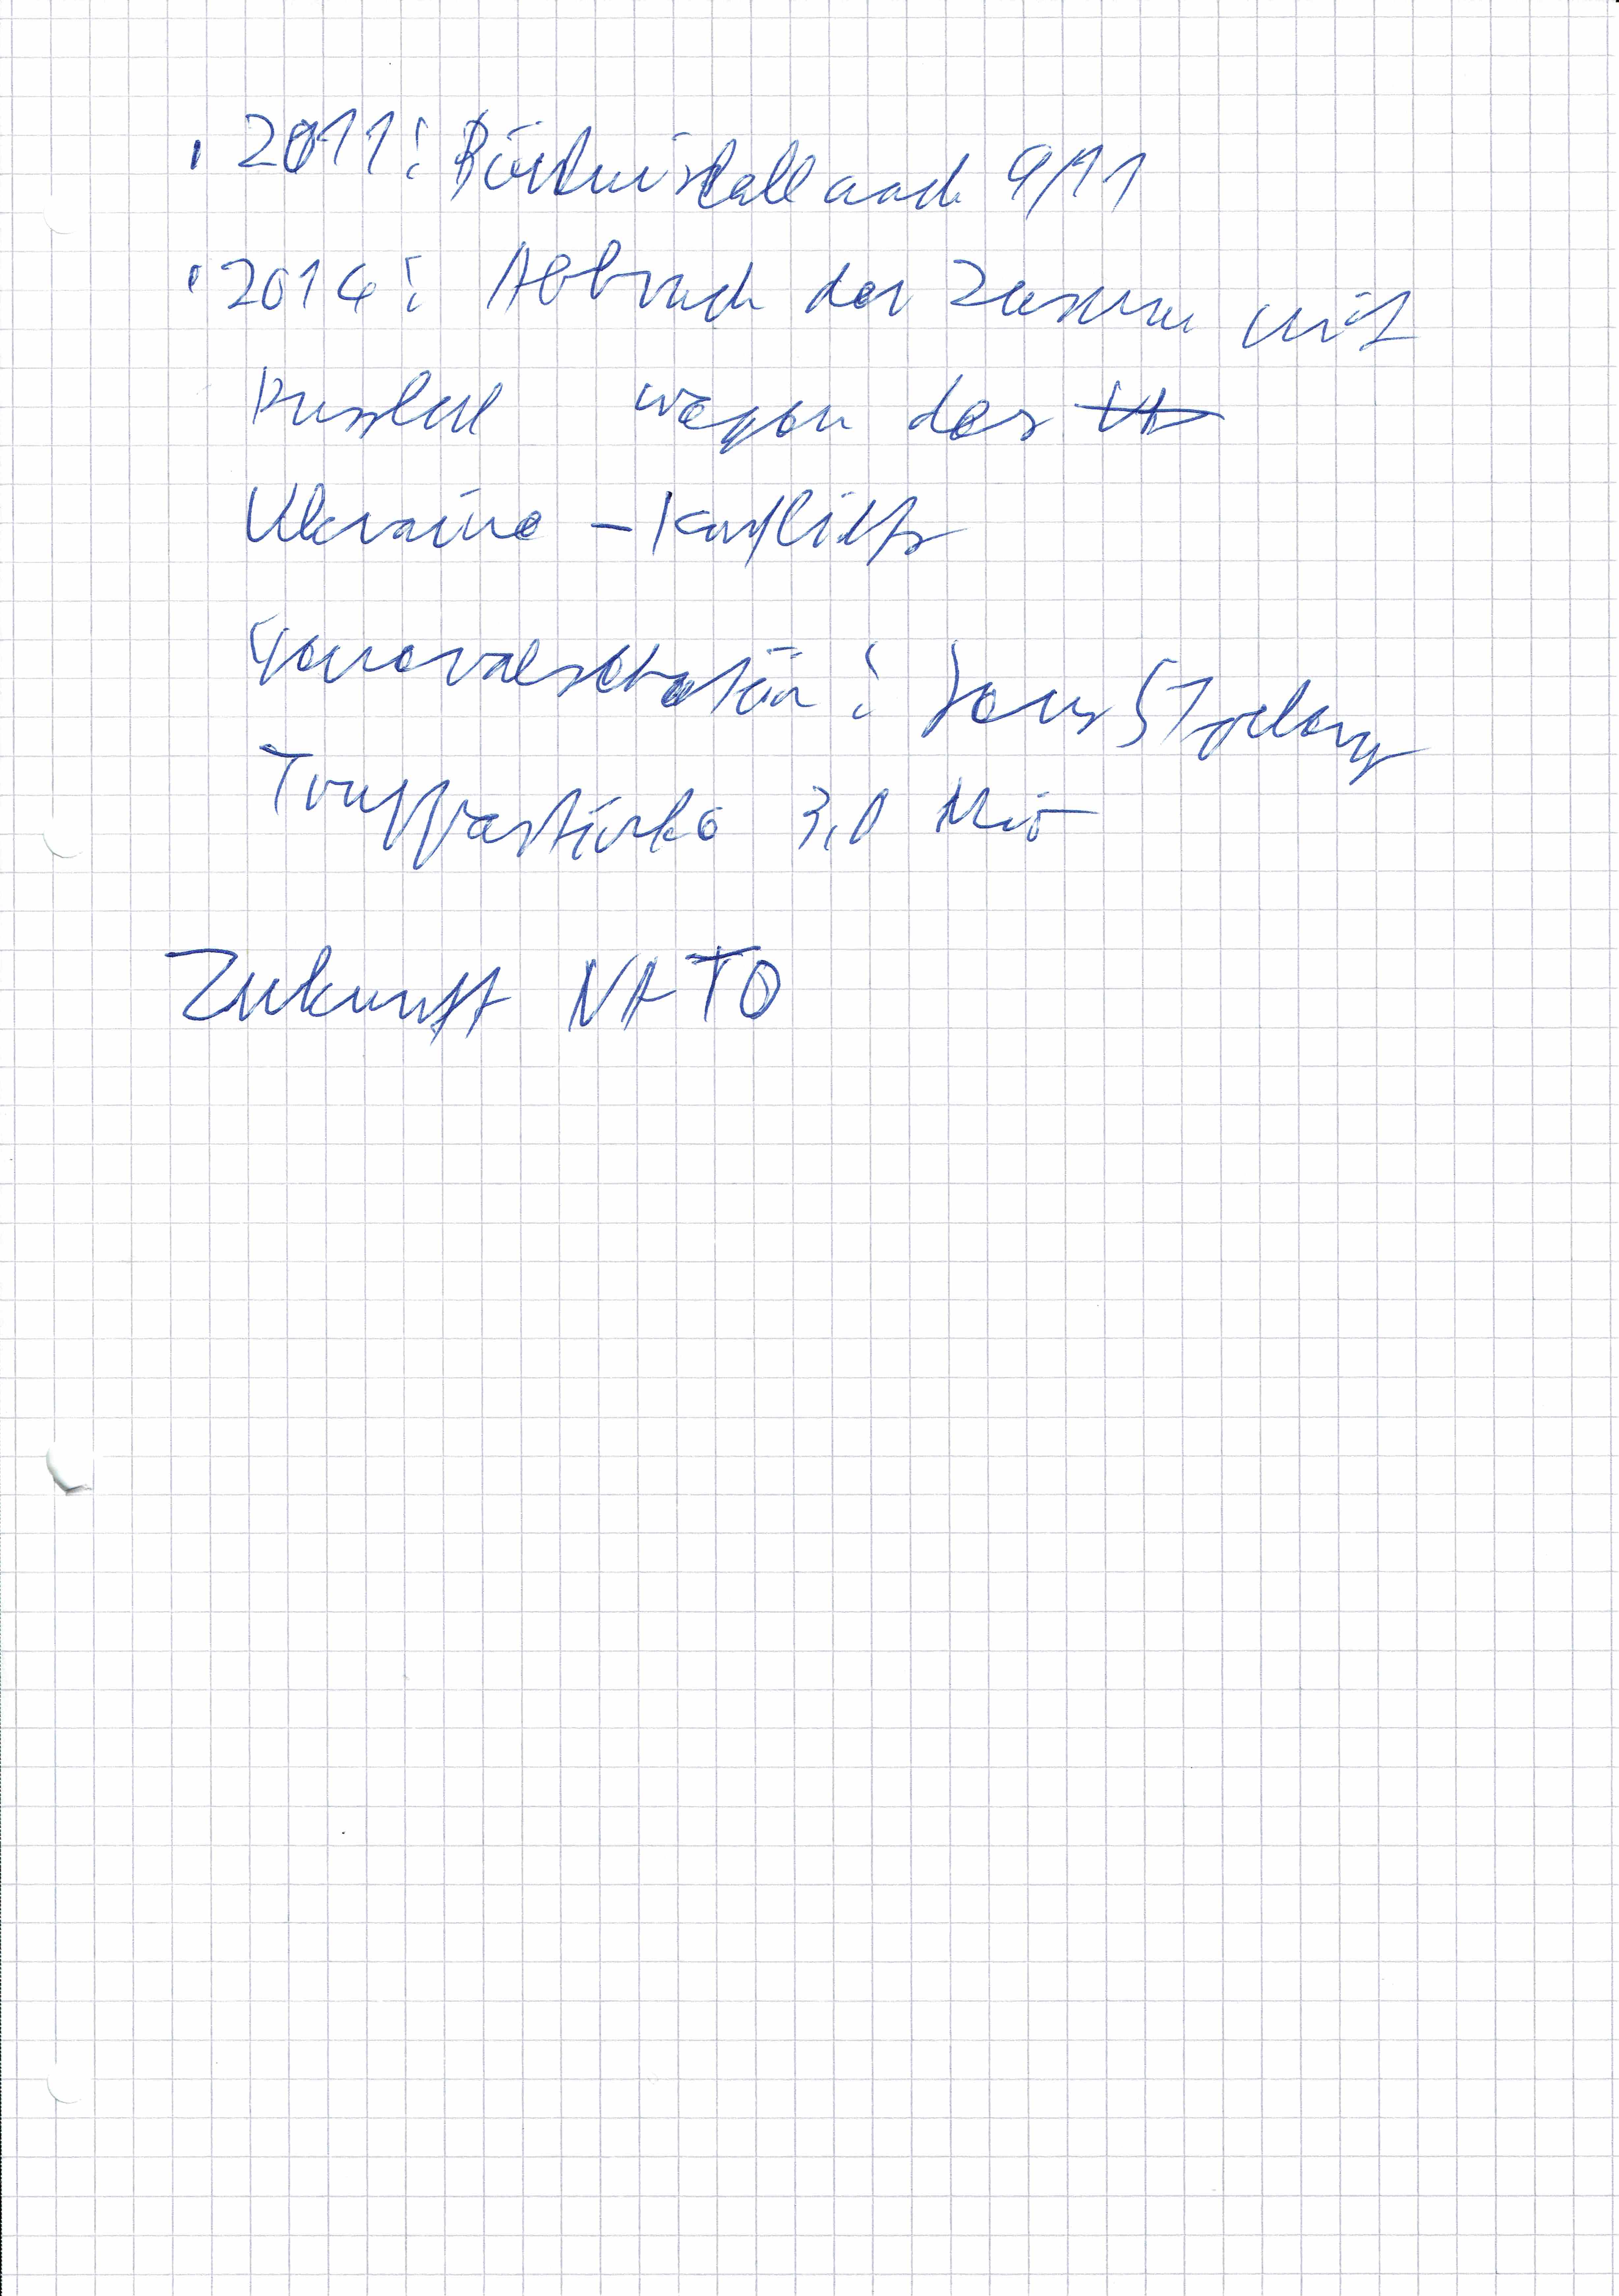 • 2011: Bündnisfall nach 9/11
• 2014: Abbruch der Zusamm mit
Russland wegen des
Ukraine-Konflikts
Generalsekretär: Jens Stoltenberg
Truppenstärke 3,8 Mio
Zukunft NATO